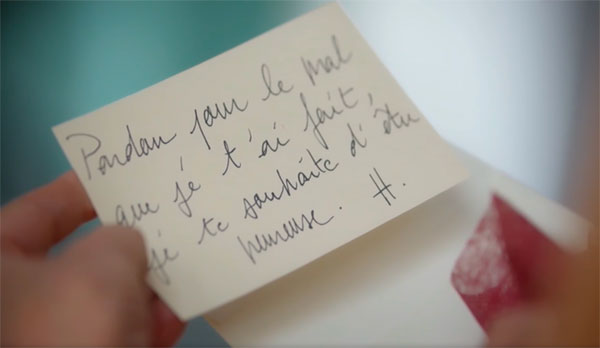 Pardon pour le mal
que je t'ai fait,
je te souhaite d'être
heureuse. H.